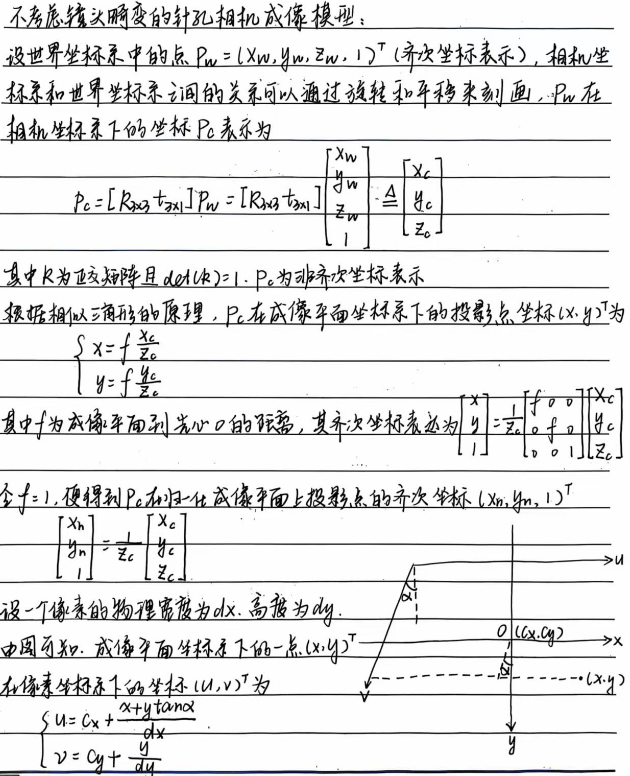 不考虑镜头畸变的针孔相机成像模型:
设世界坐标系中的点 Pw = (xw, yw, zw, 1)ᵀ (齐次坐标表示), 相机坐
标系和世界坐标系之间的关系可以通过旋转和平移来刻画, Pw 在
相机坐标系下的坐标 Pc 表示为
Pc = [R3x3 t3x1] Pw = [R3x3 t3x1] [xw yw zw 1] ≜ [xc yc zc]
其中 R 为正交矩阵且 det(R)=1. Pc 为非齐次坐标表示
根据相似三角形的原理, Pc 在成像平面坐标系下的投影点坐标 (x, y)ᵀ 为
{ x = f xc/zc
y = f yc/zc
其中 f 为成像平面到光心 O 的距离, 其齐次坐标表达为 [x y 1] = 1/zc [f 0 0; 0 f 0; 0 0 1] [xc yc zc]
令 f=1, 便得到 Pc 在归一化成像平面上投影点的齐次坐标 (xn, yn, 1)ᵀ
[xn yn 1] = 1/zc [xc yc zc]
设一个像素的物理宽度为 dx. 高度为 dy.
由图可知. 成像平面坐标系下的一点 (x, y)ᵀ
在像素坐标系下的坐标 (u, v)ᵀ 为
{ u = cx + (x + y tanα)/dx
v = cy + y/dy
u
α
O (cx, cy)
x
α
(x, y)
v
y